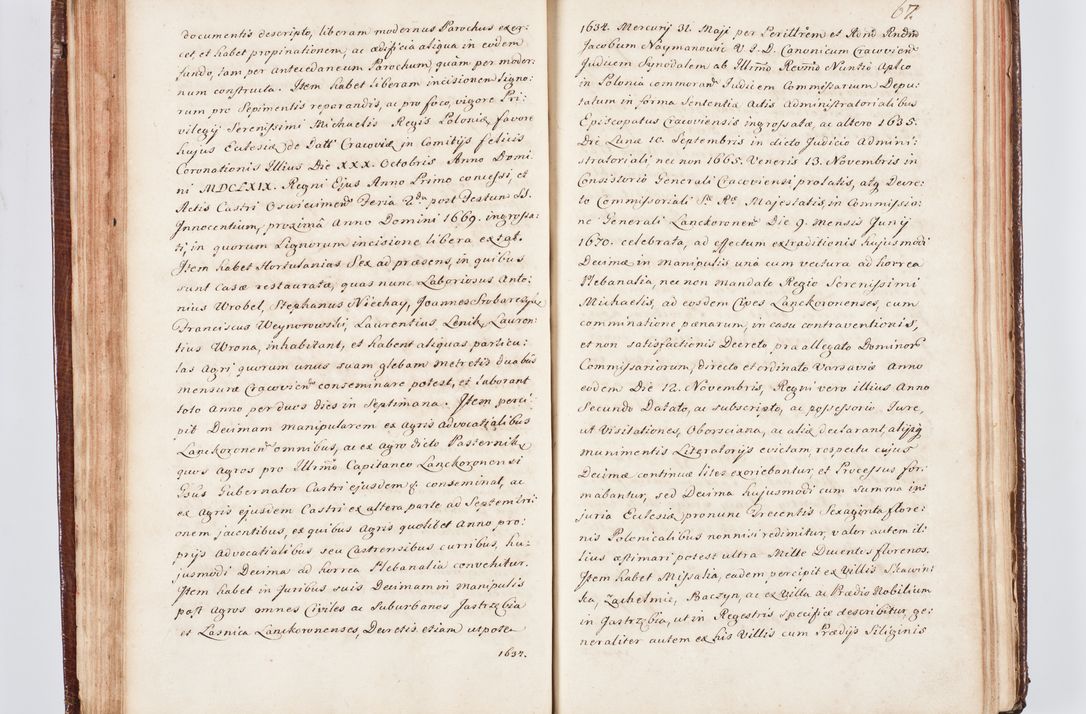 documentis descripto, liberam modernus Parochus exer:
cet et habet propinationem, ac ædificia aliqua in eodem
fundo, tam per Antecedaneum Parochum, quam per moder:
num constructa. Item habet liberam incisionem Ligno:
rum pro Sepimentis reparandis, ac pro foco, vigore Pri:
vilegij Serenissimi Michaelis Regis Poloniæ favore
hujus Ecclesiæ de Dato Cracoviæ in Comitijs felicis
Coronationis Illius Die XXX. Octobris Anno Domi
ni MDCLXIX. Regni Ejus Anno Primo concessi, et
Actis Castri Oswiecimen Feria 2da post Festum SS.
Innocentium, proximâ Anno Domini 1669. ingrossa:
ti, in quorum Lignorum incisione libera extat.
Item habet Hortulanias Sex ad præsens, in quibus
sunt Casæ restauratæ, quas nunc Laboriosus Anto:
nius Wrobel, Stephanus Niechay, Joannes Srobarczyk
Franciscus Weynorowski, Laurentius Lenik, Lauren:
tius Wrona, inhabitant, et habent aliquas particu:
las Agri quorum unus suam glebam metretis duabus
mensuræ Cracovien conseminare potest, et laborant
toto Anno per duos dies in Septimana. Item perci:
pit Decimam manipularem ex Agris Advocatialibus
Lanckoronen omnibus, ac ex agro dicto Pasternik,
quos Agros pro Illrmo Capitaneo Lanckoronensi
Gsus Gubernator Castri ejusdem conseminat, ac
ex Agris ejusdem Castri ex altera parte ad Septemtri:
onem jacentibus, ex quibus Agris quolibet Anno, pro:
prijs Advocatialibus seu Castrensibus curribus, hu:
jusmodi Decima ad horrea Plebanalia convehitur.
Item habet in Juribus suis Decimam in manipulis
post Agros omnes Civiles ac Suburbanos Jastrzębia
et Lasnica Lanckoronenses, Decretis etiam utpote
1634.
67.
1634. Mercurij 31. Maji per Perillrem et Rdnd Rndm
Jacobum Naymanowic V. I. D. Canonicum Cracovien
Judicem Synodalem ab Illrmo Revmo Nuntio Aplco
in Polonia commoran Judicem Commissarium Depu:
tatum in forma Sententiæ Actis Administratorialibus
Episcopatus Cracoviensis ingrossatæ, ac altero 1635.
Die Lunæ 10. Septembris in dicto Judicio Admini:
stratoriali nec non 1665. Veneris 13. Novembris in
Consistorio Generali Cracoviensi prolatis, atq Decre:
to Commissoriali Sæ Ræ Majestatis, in Commissio:
ne Generali Lanckoronen Die 9. Mensis Junij
1670. celebrata, ad effectum extraditionis hujusmodi
Decimæ in manipulis unà cum vectura ad horrea
Plebanalia, nec non mandato Regio Serenissimi
Michaelis, ad eosdem Cives Lanckoronenses, cum
comminatione pænarum, in casu contraventionis,
et non satisfactionis Decreto præallegato Dominor
Commissariorum, directo et ordinato Varsaviæ Anno
eodem Die 12. Novembris, Regni vero illius Anno
Secundo Datato, ac subscripto, ac possessorio Jure,
ut Visitationes, Oborsciana, ac aliæ declarant, alijsq
munimentis Literatorijs evictam, respectu cujus
Decimæ continuæ lites exoriebantur et Processus for:
mabantur, sed Decima hujusmodi cum summa in:
juria Ecclesiæ pronunc Trecentis Sexaginta flore:
nis Polonicalibus nonnisi redimitur, valor autem il:
lius æstimari potest ultra Mille Ducentis florenos.
Item habet Missalia, eadem percipit ex Villis Skawin:
ka, Zachełmie, Baczyn, ac ex Villa ac Prædio Nobilium
in Jastrzębia, ut in Regestris specifice describitur, ge:
neraliter autem ex his Villis cum Prædijs Siliginis